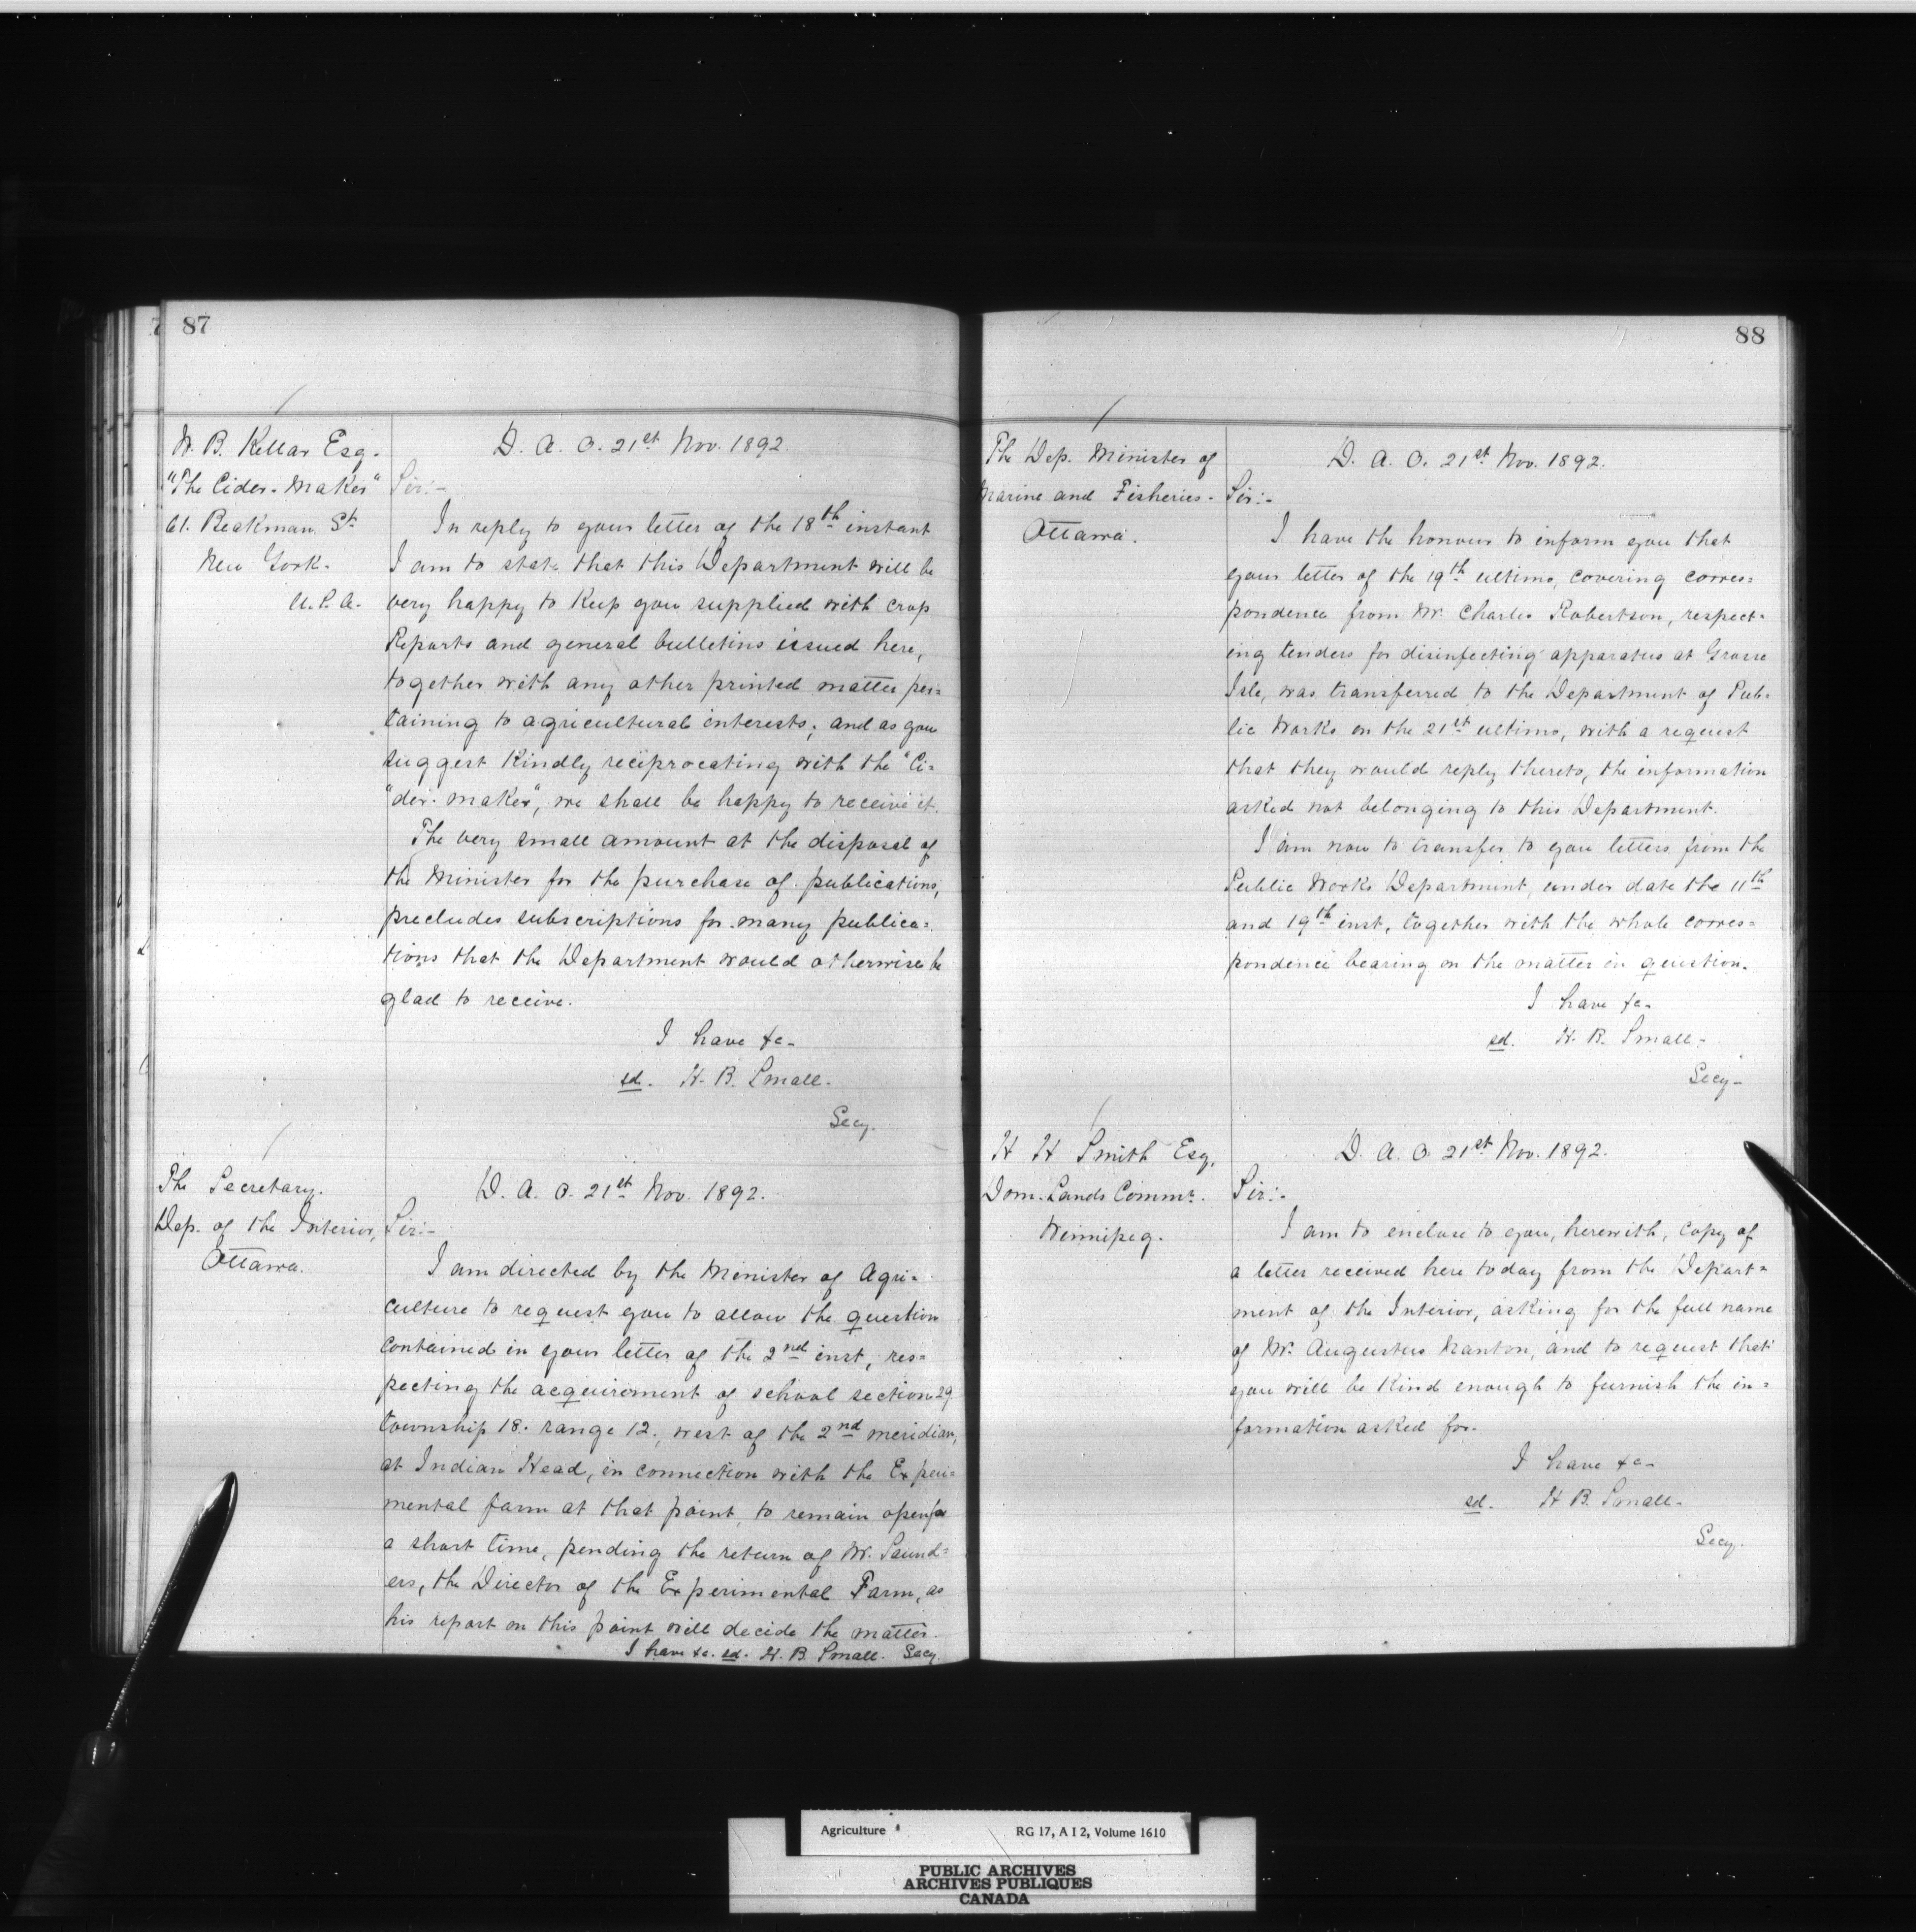 87
W. B. Kellar Esq.
"The Cider-Maker"
61. Beakman St.
New York.
U.S.A.
D. A. O. 21st Nov. 1892.
Sir:-
In reply to your letter of the 18th instant
I am to state that this Department will be
very happy to keep you supplied with crop
Reports and general bulletins issued here,
together with any other printed matter per=
taining to agricultural interests; and as you
suggest kindly reciprocating with the "Ci=
"der-maker", we shall be happy to receive it.
The very small amount at the disposal of
the Minister for the purchase of publications,
precludes subscriptions for many publica=
tions that the Department would otherwise be
glad to receive.
I have &c-
sd. H. B. Small.
Secy.
The Secretary.
Dep. of the Interior,
Ottawa.
D. A. O. 21st Nov. 1892.
Sir:-
I am directed by the Minister of Agri=
culture to request you to allow the question
contained in your letter of the 2nd inst, res=
pecting the acquirement of school section 29
township 18. range 12., west of the 2nd meridian,
at Indian Head, in connection with the Experi=
mental farm at that point, to remain open for
a short time, pending the return of Mr. Saund=
ers, the Director of the Experimental Farm, as
his report on this point will decide the matter.
I have &c. sd. H. B. Small. Secy.
88
The Dep. Minister of
Marine and Fisheries-
Ottawa.
D. A. O. 21st Nov. 1892.
Sir:-
I have the honour to inform you that
your letter of the 19th ultimo, covering corres=
pondence from Mr. Charles Robertson, respect=
ing tenders for disinfecting apparatus at Grosse
Isle, was transferred to the Department of Pub=
lic Works on the 21st ultimo, with a request
that they would reply thereto, the information
asked not belonging to this Department.
I am now to transfer to you letters from the
Public Works Department, under date the 11th
and 19th inst, together with the whole corres=
pondence bearing on the matter in question.
I have &c-
sd. H. B. Small-
Secy-
H H Smith Esq,
Dom. Lands Commr.
Winnipeg.
D. A. O. 21st Nov. 1892.
Sir:-
I am to enclose to you, herewith, copy of
a letter received here today from the Depart=
ment of the Interior, asking for the full name
of Mr. Augustus Nanton, and to request that
you will be kind enough to furnish the in=
formation asked for.
I have &c-
sd. H B. Small-
Secy.
Agriculture RG 17, A I 2, Volume 1610
PUBLIC ARCHIVES
ARCHIVES PUBLIQUES
CANADA